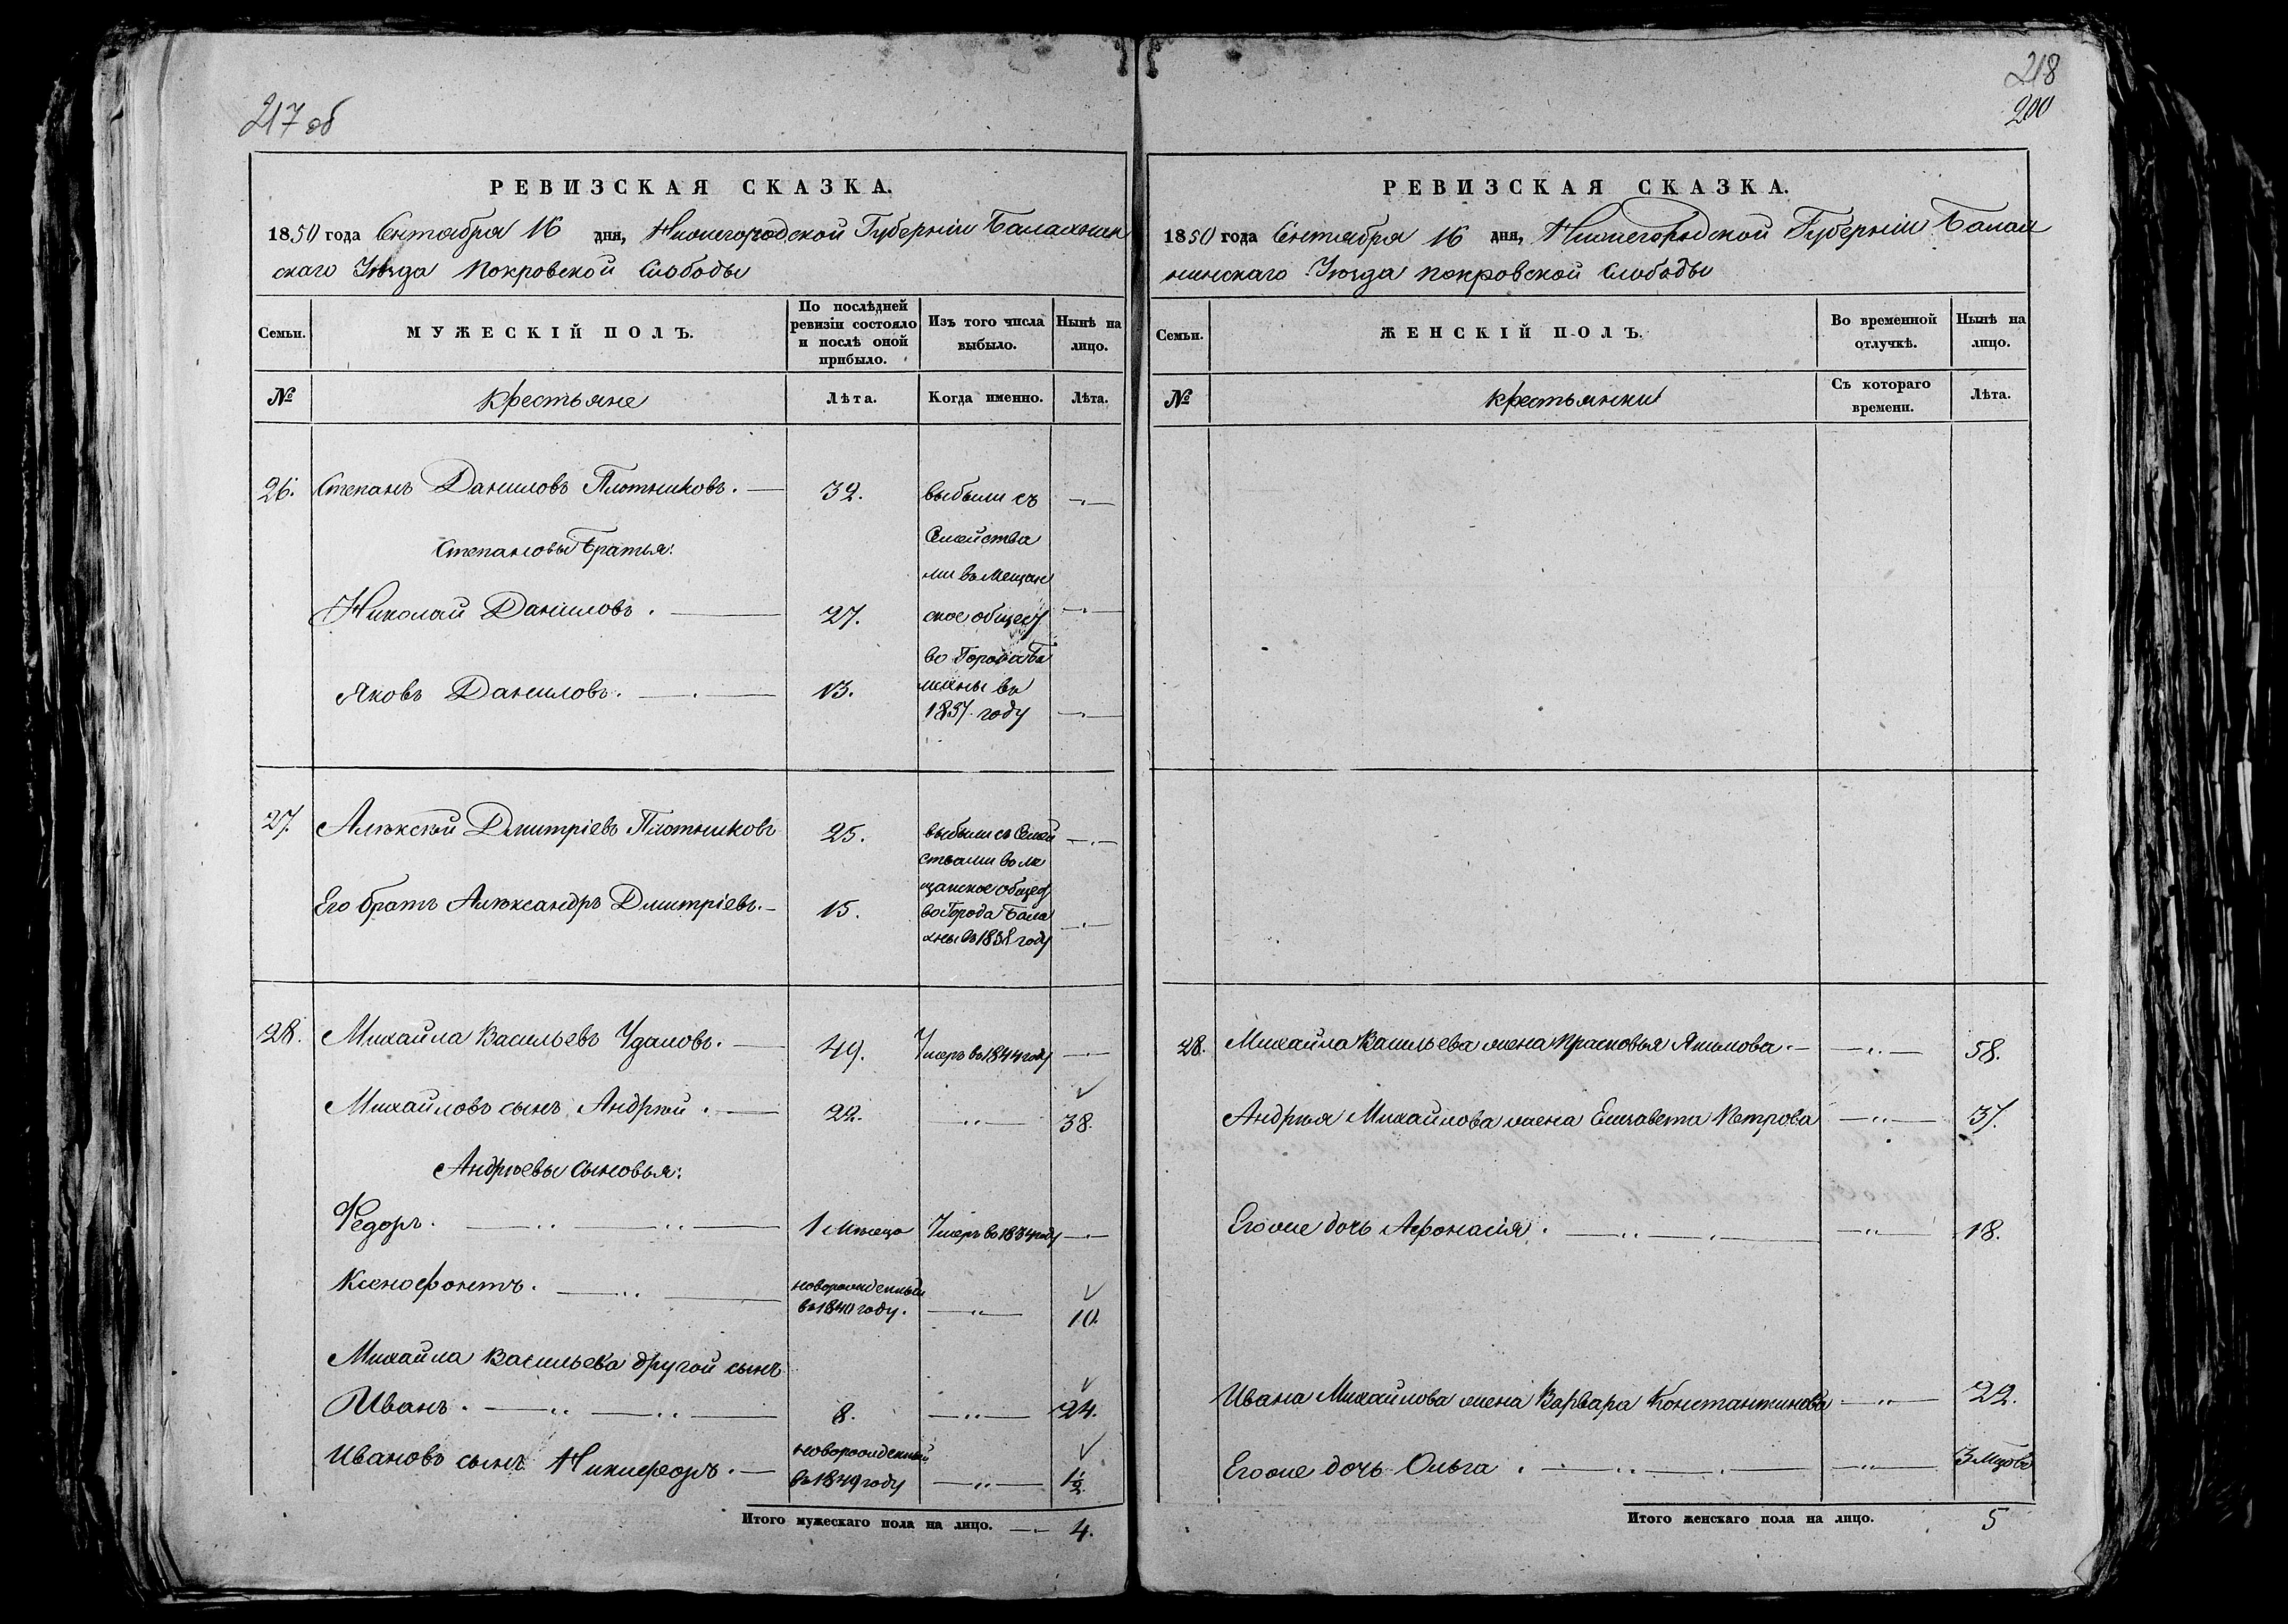 217 об
РЕВИЗСКАЯ СКАЗКА.
1850 года Сентября 16 дня, Нижегородской Губерніи Балахнин
скаго Уѣзда Покровской Слободы
Семьи.
МУЖЕСКІЙ ПОЛЪ.
По послѣдней
ревизіи состояло
и послѣ оной
прибыло.
Изъ того числа
выбыло.
Нынѣ на
лицо.
№
Крестьяне
Лѣта.
Когда именно.
Лѣта.
26. Степанъ Даниловъ Плотниковъ. 32. выбыли съ
Степановы Братья: Семейства
ми въ Мещан
Николай Даниловъ. 27. ское общест
во Города Ба
Яковъ Даниловъ. 13. лахны въ
1837. году
27. Алѣксѣй Дмитріевъ Плотниковъ 25. выбыли съ Семей
ствами во Ме
щанское общест
Его братъ Алѣксандръ Дмитріевъ. 15. во Города Бала
хны въ 1838 году
28. Михайла Васильевъ Удаловъ. 49. Умеръ въ 1844 году
Михайловъ сынъ Андрѣй. 22. 38.
Андрѣевы сыновья:
Ѳедоръ. 1 Мѣсяца Умеръ въ 1834 году
Ксенофонтъ. новорожденный
въ 1840 году. 10.
Михайла Васильева другой сынъ
Иванъ. 8. 24.
Ивановъ сынъ Никифоръ. новорожденный
въ 1849 году 1½
Итого мужескаго пола на лицо. 4.
218
200
РЕВИЗСКАЯ СКАЗКА.
1850 года Сентября 16 дня, Нижегородской Губерніи Балах
нинскаго Уѣзда покровской Слободы
Семьи.
ЖЕНСКІЙ ПОЛЪ.
Во временной
отлучкѣ.
Нынѣ на
лицо.
№
Крестьянки
Съ котораго
времени.
Лѣта.
28. Михайла Васильева жена Прасковья Якимова. 58.
Андрѣя Михайлова жена Елизавета Петрова 37.
Его же дочь Афонасія. 18.
Ивана Михайлова жена Варвара Константинова 22.
Его же дочь Ольга. 3 Мцовъ
Итого женскаго пола на лицо. 5